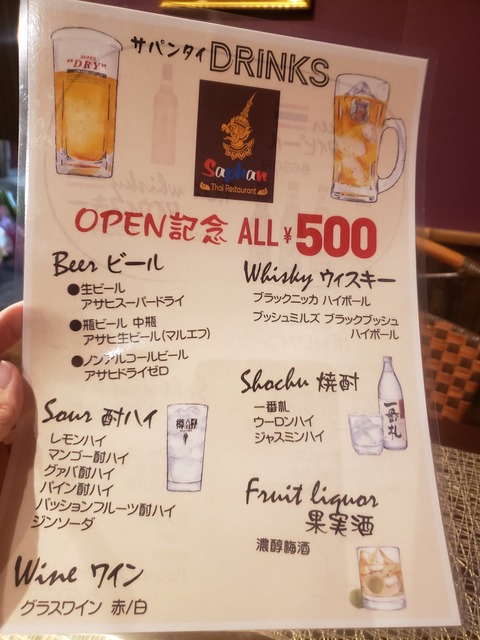 サパンタイ DRINKS
SUPER "DRY"
Saphan
Thai Restaurant
OPEN記念 ALL ¥500
Beer ビール
●生ビール
アサヒスーパードライ
●瓶ビール 中瓶
アサヒ生ビール(マルエフ)
●ノンアルコールビール
アサヒドライゼロ
Sour 酎ハイ
レモンハイ
マンゴー酎ハイ
グァバ酎ハイ
パイン酎ハイ
パッションフルーツ酎ハイ
ジンソーダ
Wine ワイン
グラスワイン 赤/白
Whisky ウィスキー
ブラックニッカ ハイボール
ブッシュミルズ ブラックブッシュ
ハイボール
Shochu 焼酎
一番札
ウーロンハイ
ジャスミンハイ
一番札
Fruit liquor
果実酒
濃醇梅酒